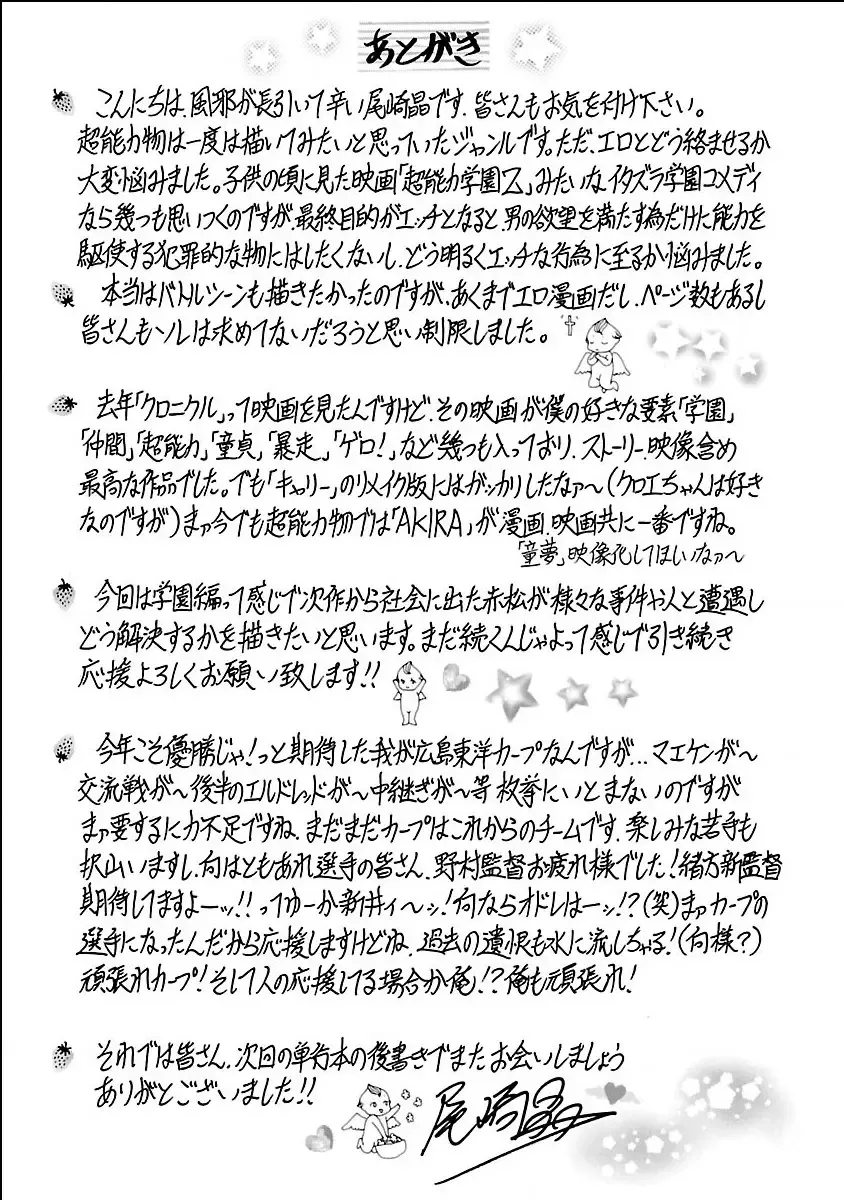 あとがき
こんにちは、風邪が長引いて辛い尾崎晶です。皆さんもお気を付け下さい。
超能力物は一度は描いてみたいと思っていたジャンルです。ただ、エロとどう絡ませるか
大変悩みました。子供の頃に見た映画「超能力学園Z」みたいなイタズラ学園コメディ
なら幾つも思いつくのですが、最終目的がエッチとなると、男の欲望を満たす為だけに能力を
駆使する犯罪的な物にはしたくないし、どう明るくエッチな行為に至るか悩みました。
本当はバトルシーンも描きたかったのですが、あくまでエロ漫画だし、ページ数もあるし
皆さんもソレは求めてないだろうと思い制限しました。
去年「クロニクル」って映画を見たんですけど、その映画が僕の好きな要素「学園」
「仲間」「超能力」「童貞」「暴走」「ゲロ!」など幾つも入っており、ストーリー、映像含め
最高な作品でした。でも「キャリー」のリメイク版にはガッカリしたなァ〜(クロエちゃんは好き
なのですが)まァ今でも超能力物では「AKIRA」が漫画、映画共に一番ですね。
「童夢」映像化してほしいなァ〜
今回は学園編って感じで次作から社会に出た赤松が様々な事件や人と遭遇し
どう解決するかを描きたいと思います。まだ続くんじゃよって感じで引き続き
応援よろしくお願い致します!!
今年こそ優勝じゃ!っと期待した我が広島東洋カープなんですが...マエケンが〜
交流戦が〜後半のエルドレッドが〜中継ぎが〜等 枚挙にいとまないのですが
まァ要するに力不足ですね、まだまだカープはこれからのチームです、楽しみな若手も
沢山いますし、何はともあれ選手の皆さん、野村監督お疲れ様でした!緒方新監督
期待してますよーッ!!ってゆーか新井ィ〜ッ!何ならオドレはーッ!?(笑)まァカープの
選手になったんだから応援しますけどね、過去の遺恨も水に流しちゃる!(何様?)
頑張れカープ!そして人の応援してる場合か俺!?俺も頑張れ!
それでは皆さん、次回の単行本の後書きでまたお会いしましょう
ありがとございました!!
尾崎晶